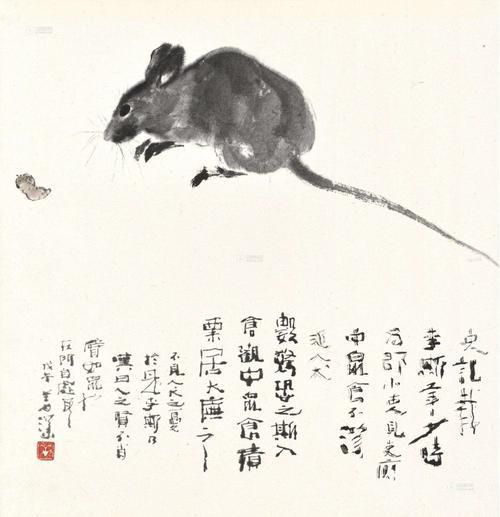 史記
李斯年少時
為郡小吏見吏廁
中鼠食不潔
近人犬
數驚恐之斯入
倉觀中鼠食積
粟居大廡之下
不見人犬之憂
於是李斯乃
嘆曰人之賢不肖
譬如鼠矣
在所自處耳
戊午